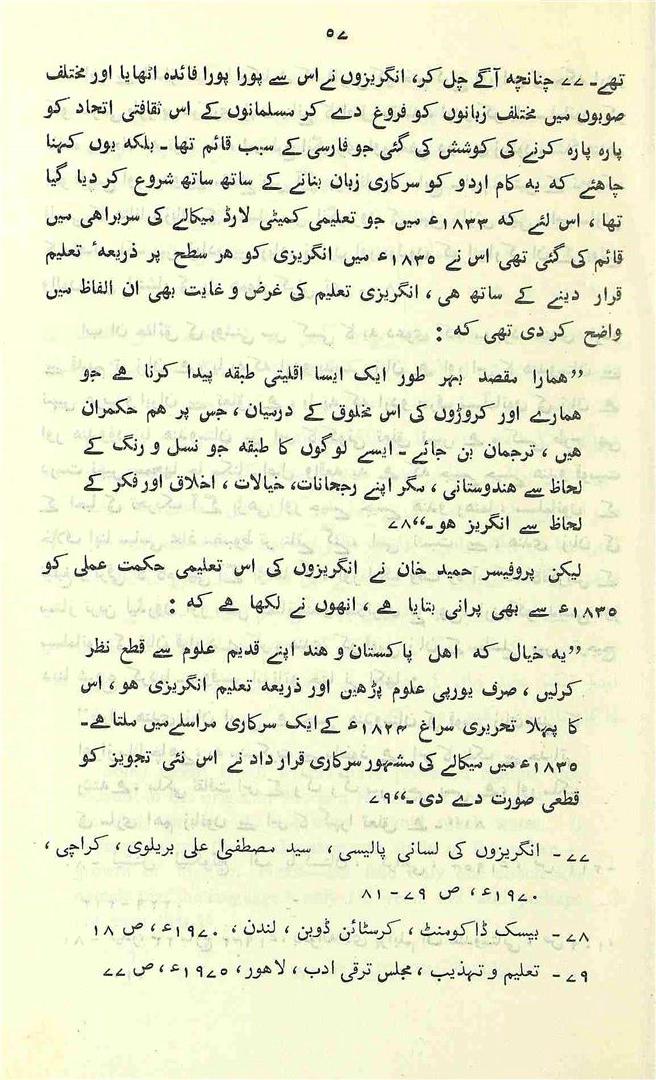 ۵۷
تھے۔ ۷۷ چنانچہ آگے چل کر، انگریزوں نے اس سے پورا پورا فائدہ اٹھایا اور مختلف
صوبوں میں مختلف زبانوں کو فروغ دے کر مسلمانوں کے اس ثقافتی اتحاد کو
پارہ پارہ کرنے کی کوشش کی گئی جو فارسی کے سبب قائم تھا ۔ بلکہ یوں کہنا
چاھئے کہ یہ کام اردو کو سرکاری زبان بنانے کے ساتھ ساتھ شروع کر دیا گیا
تھا ، اس لئے کہ ۱۸۳۳ء میں جو تعلیمی کمیٹی لارڈ میکالے کی سربراھی میں
قائم کی گئی تھی اس نے ۱۸۳۵ء میں انگریزی کو ھر سطح پر ذریعۂ تعلیم
قرار دینے کے ساتھ ھی ، انگریزی تعلیم کی غرض و غایت بھی ان الفاظ میں
واضح کر دی تھی کہ :
’’ھمارا مقصد بہر طور ایک ایسا اقلیتی طبقہ پیدا کرنا ھے جو
ھمارے اور کروڑوں کی اس مخلوق کے درسیان ، جس پر ھم حکمران
ھیں ، ترجمان بن جائے ۔ ایسے لوگوں کا طبقہ جو نسل و رنگ کے
لحاظ سے ھندوستانی ، مگر اپنے رجحانات، خیالات ، اخلاق اور فکر کے
لحاظ سے انگریز ھو ۔‘‘۷۸
لیکن پروفیسر حمید خان نے انگریزوں کی اس تعلیمی حکمت عملی کو
۱۸۳۵ء سے بھی پرانی بتایا ھے ، انھوں نے لکھا ھے کہ :
’’یہ خیال کہ اھل پاکستان و ھند اپنے قدیم علوم سے قطع نظر
کرلیں ، صرف یورپی علوم پڑھیں اور ذریعہ تعلیم انگریزی ھو ، اس
کا پہلا تحریری سراغ ۱۸۲۴ء کے ایک سرکاری مراسلے میں ملتا ھے۔
۱۸۳۵ء میں میکالے کی مشہور سرکاری قرار داد نے اس نئی تجویز کو
قطعی صورت دے دی ۔‘‘۷۹
۷۷ ۔ انگریزوں کی لسانی پالیسی ، سید مصطفیٰ علی بریلوی ، کراچی ،
۱۹۷۰ء ، ص ۷۹ - ۸۱
۷۸ ۔ بیسک ڈاکومنٹ ، کرسٹائن ڈوبن ، لندن ، ۱۹۷۰ء ، ص ۱۸
۷۹ ۔ تعلیم و تہذیب ، مجلس ترقی ادب ، لاھور ، ۱۹۷۵ء ، ص ۷۷